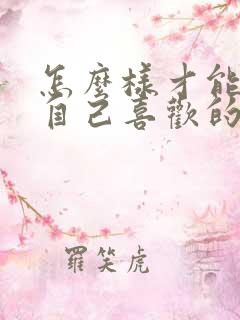 怎麼樣才能
自己喜歡的
羅笑虎